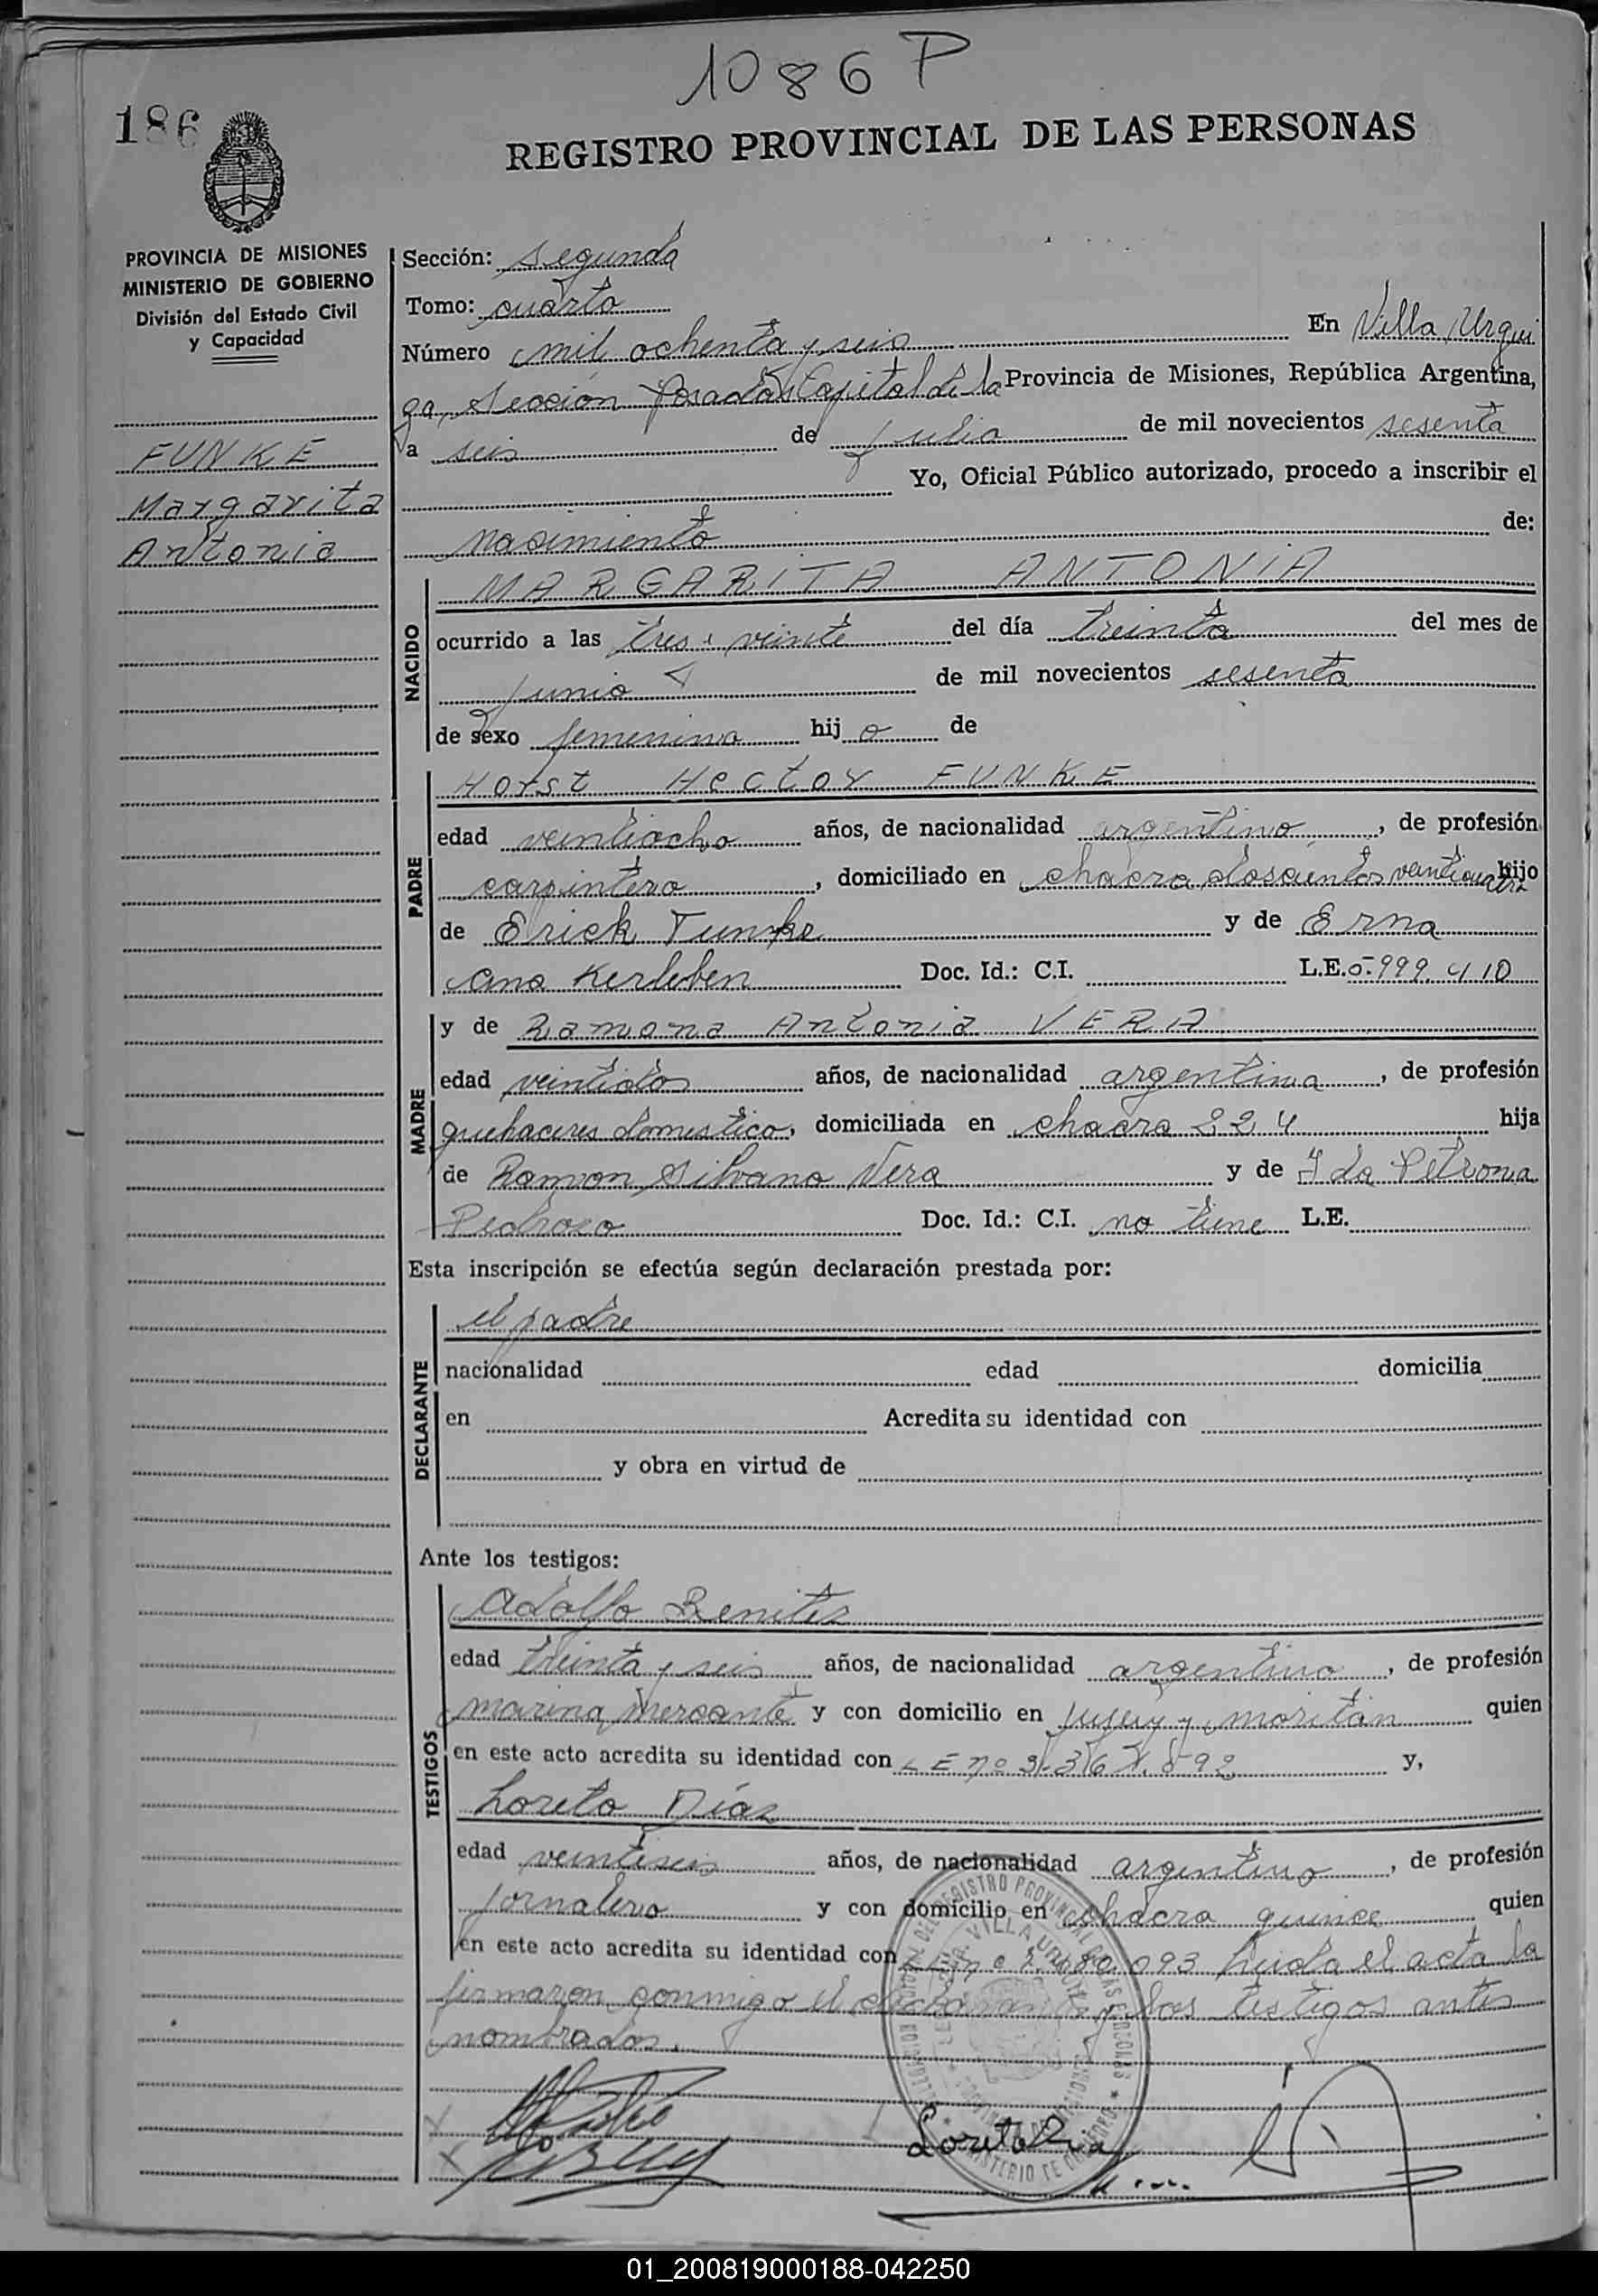 1086 P
186
REGISTRO PROVINCIAL DE LAS PERSONAS
PROVINCIA DE MISIONES
MINISTERIO DE GOBIERNO
División del Estado Civil
y Capacidad
FUNKE
Margarita
Antonia
Sección: segunda
Tomo: cuarto
Número mil ochenta y seis En Villa Urqui
za, Sección Posadas Capital de la Provincia de Misiones, República Argentina,
a seis de Julio de mil novecientos sesenta
Yo, Oficial Público autorizado, procedo a inscribir el
nacimiento de:
NACIDO
MARGARITA ANTONIA
ocurrido a las tres y veinte del día treinta del mes de
Junio de mil novecientos sesenta
de sexo femenino hij a de
PADRE
Horst Hector FUNKE
edad veintiocho años, de nacionalidad argentino, de profesión
carpintero, domiciliado en chacra doscientos veinticuatro hijo
de Erick Funke y de Erna
Ana Kerleben Doc. Id.: C.I. L.E.
MADRE
y de Ramona Antonia VERA
edad veintidos años, de nacionalidad argentina, de profesión
quehaceres domestico, domiciliada en chacra 224 hija
de Ramon Silvano Vera y de Ida Petrona
Pedrozo Doc. Id.: C.I. no tiene L.E.
Esta inscripción se efectúa según declaración prestada por:
DECLARANTE
el padre
nacionalidad edad domicilia
en Acredita su identidad con
y obra en virtud de
Ante los testigos:
TESTIGOS
Adolfo Benitez
edad treinta y seis años, de nacionalidad argentino, de profesión
marina mercante y con domicilio en Jujuy y moritan quien
en este acto acredita su identidad con LE nº y,
Loreto Díaz
edad veintiseis años, de nacionalidad argentino, de profesión
jornalero y con domicilio en chacra quince quien
en este acto acredita su identidad con LE nº 093 Leida el acta la
firmaron conmigo el declarante y los testigos antes
nombrados.
Loreto Dia
01_200819000188-042250